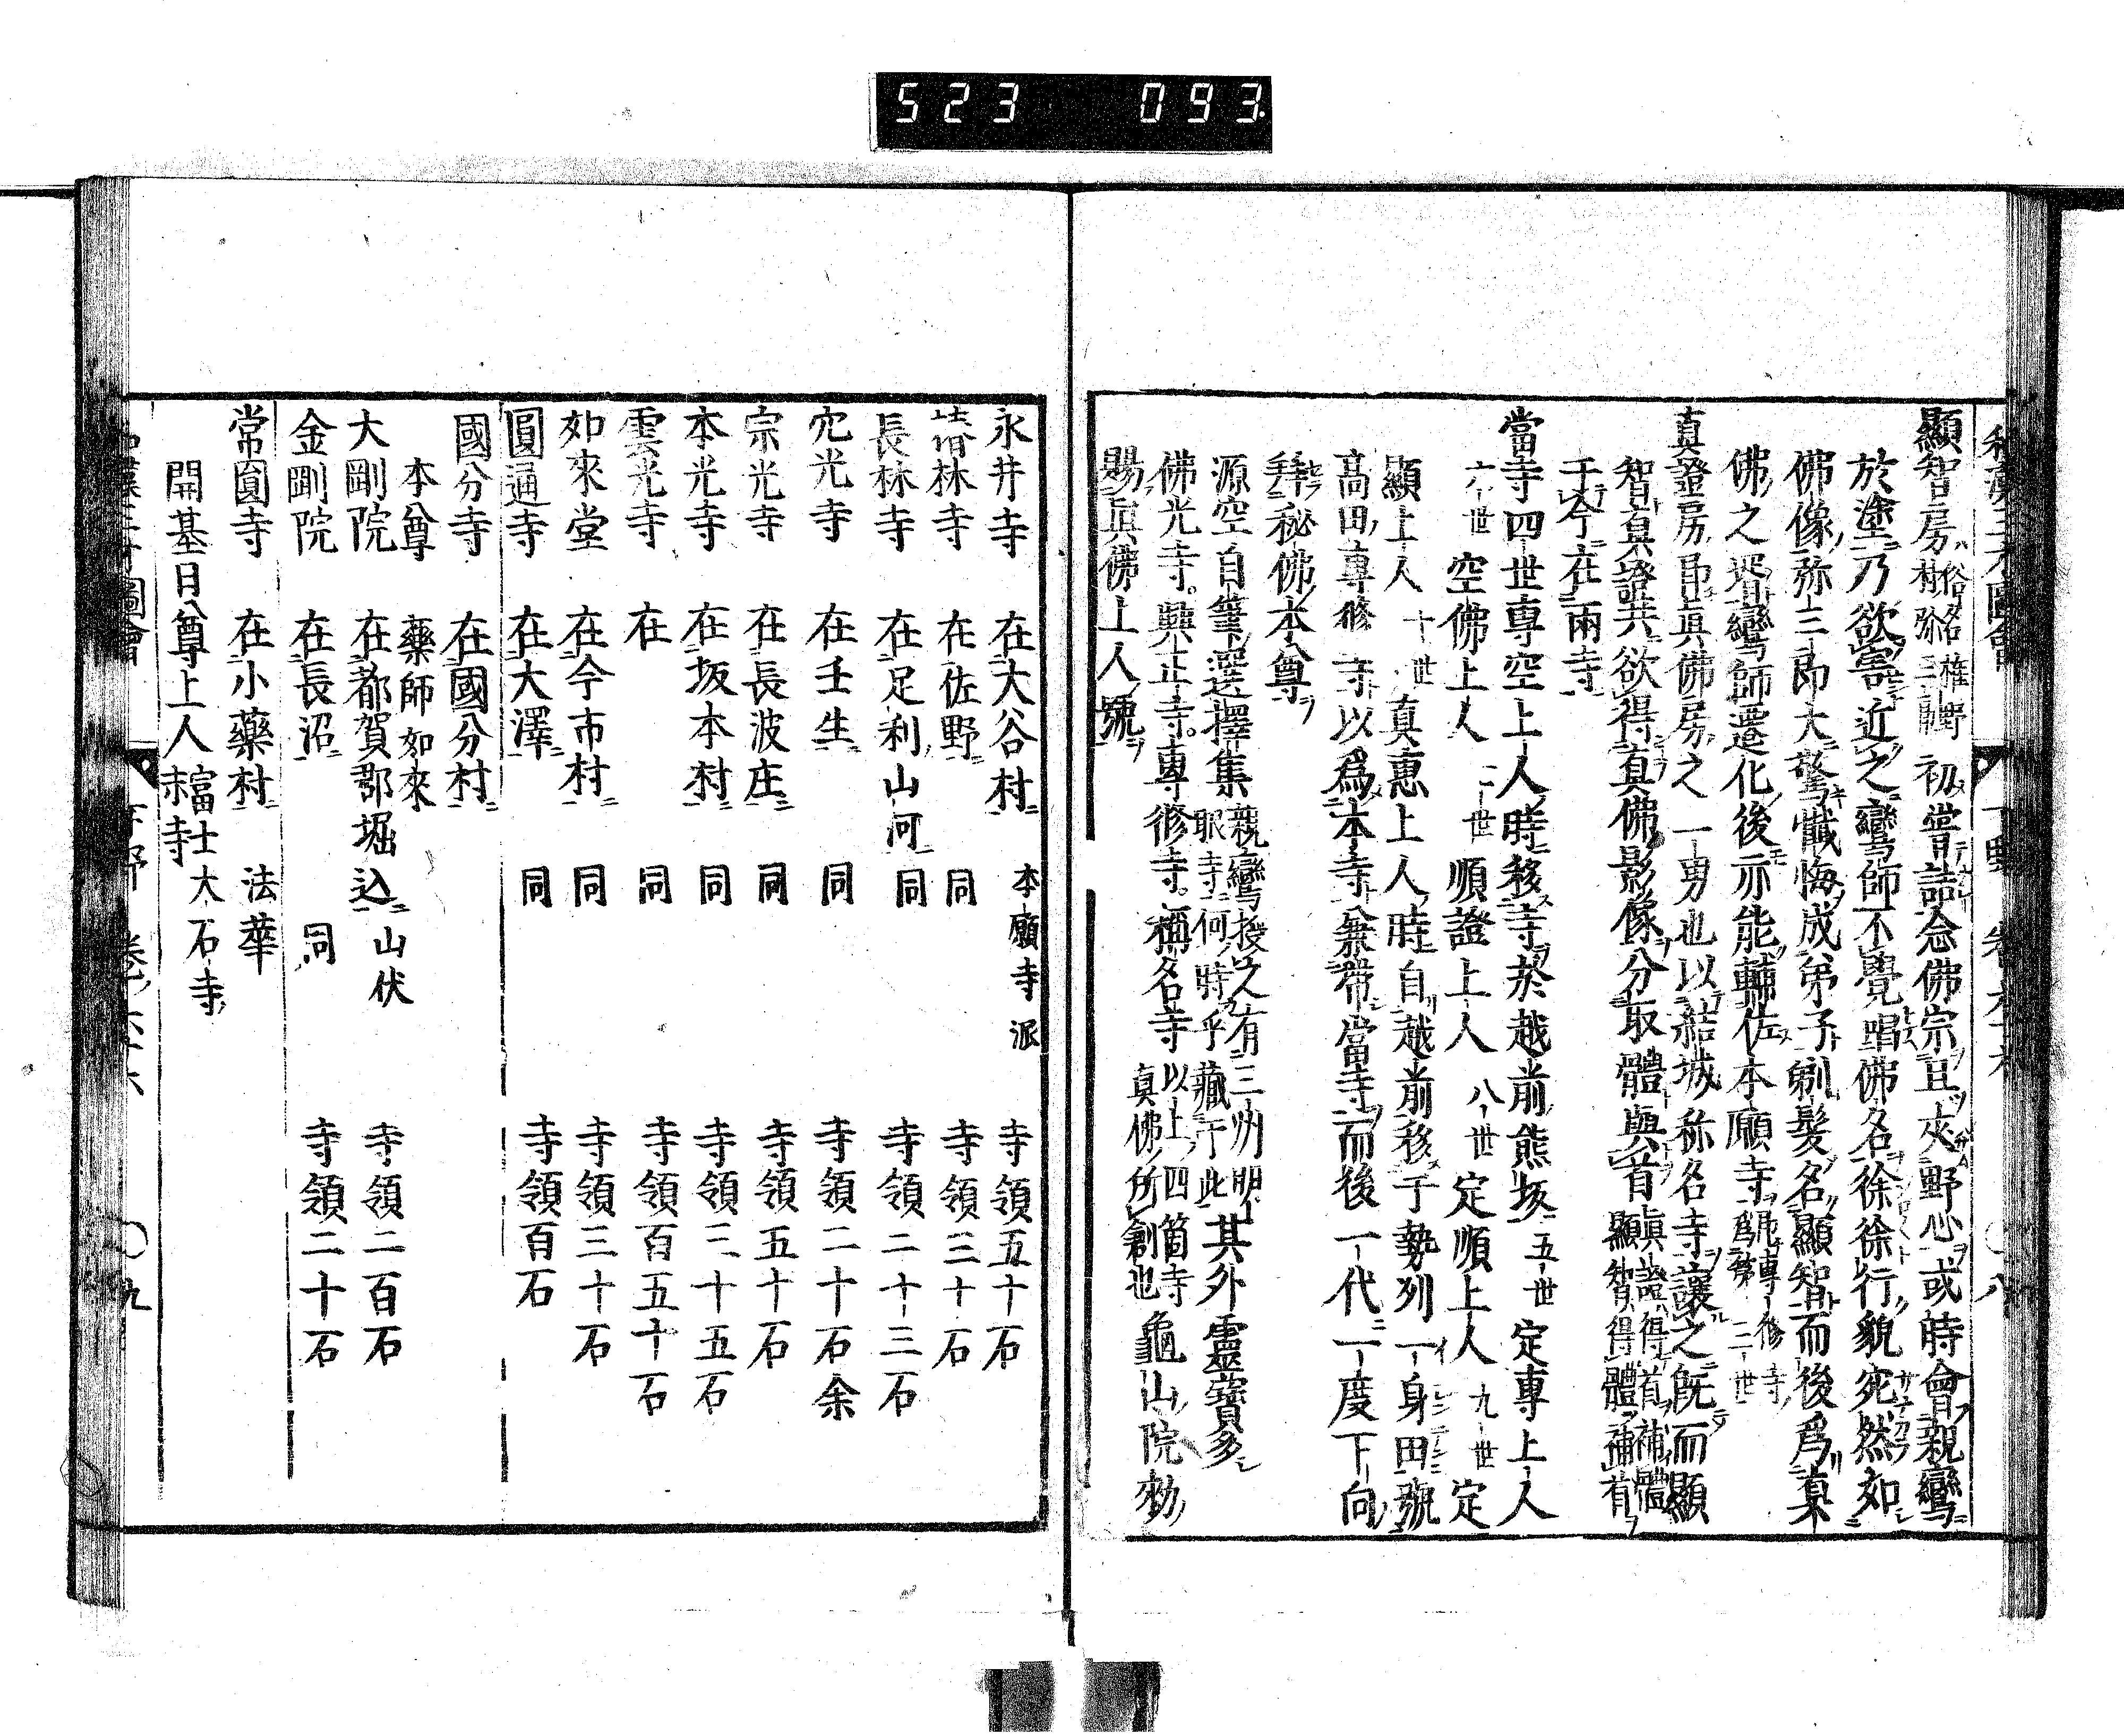 523 093
顯智房 俗名權野村弥三郎 初嘗詰念佛宗且夾野心或時會親鸞
於塗乃欲害近之鸞師不覺唱佛名徐徐行貌宛然如
佛像弥三郎大驚懺悔成弟子剃髮名顯智而後爲真
佛之 鸞師遷化後亦能輔佐本願寺 專修寺 爲第三世
真證房 真佛房之一男也以結城称名寺讓之既而顯
智真證共欲得真佛影像分取體與首 真證得首補體 顯智得體補首
于今在兩寺
當寺四世專空上人時移寺於越前熊坂 五世 定專上人
六世 空佛上人 二世 順證上人 八世 定順上人 九世 定
顯上人 十世 真惠上人時自越前移于勢列一身田號
高田專修寺以爲本寺兼帶當寺而後一代一度下向
拜秘佛本尊
源空自筆選擇集 親鸞授之有三州明眼寺何時乎藏于此 其外靈寶多
佛光寺 興正寺 專修寺 稱名寺 以上四箇寺真佛所創也 龜山院勅
賜真佛上人號
永井寺 在大谷村 本願寺派 寺領五十石
林寺 在佐野 同 寺領三十石
長林寺 在足利山河 同 寺領二十三石
光寺 在壬生 同 寺領二十石余
宗光寺 在長波庄 同 寺領五十石
本光寺 在坂本村 同 寺領二十五石
雲光寺 在 同 寺領百五十石
如來堂 在今市村 同 寺領三十石
圓通寺 在大澤 同 寺領百石
國分寺 在國分村
本尊 藥師如來
大剛院 在都賀郡堀込 山伏 寺領二百石
金剛院 在長沼 同 寺領二十石
常圓寺 在小藥村 法華
開基日尊上人 富士大石寺末寺
圖會 下野 卷六十六 〇九